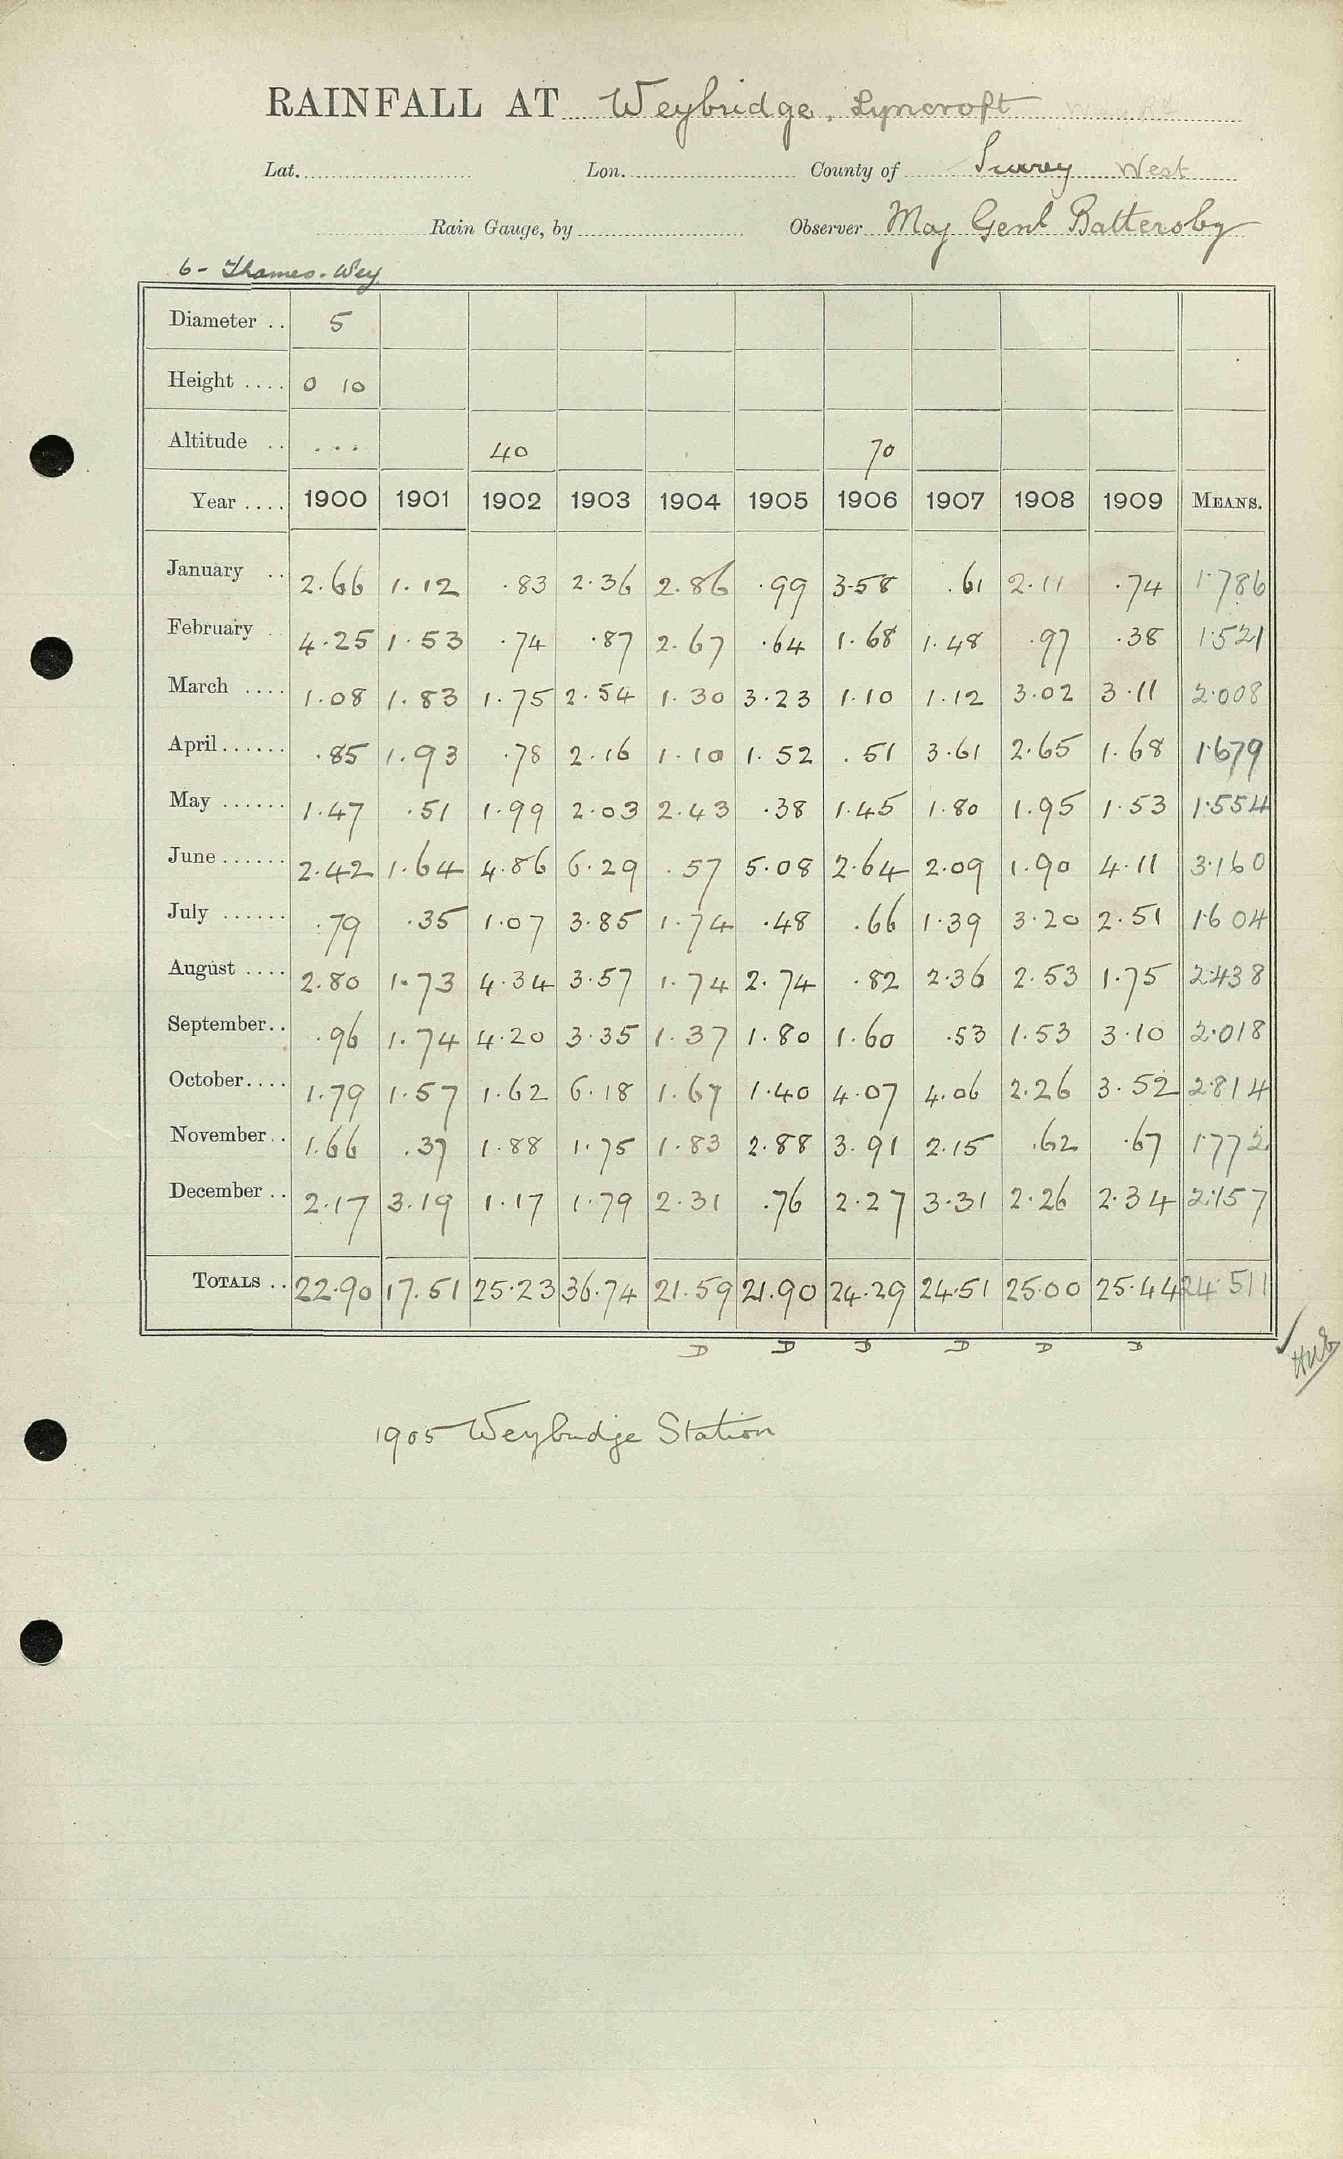 RAINFALL AT Weybridge, Lyncroft
Lat. Lon. County of Surrey West
Rain Gauge, by Observer Maj Genl Battersby
6 - Thames. Wey
Diameter .. 5
Height .... 0 10
Altitude .. ... 40 70
Year .... 1900 1901 1902 1903 1904 1905 1906 1907 1908 1909 MEANS.
January .. 2.66 1.12 .83 2.36 2.86 .99 3.58 .61 2.11 .74 1.786
February . 4.25 1.53 .74 .87 2.67 .64 1.68 1.48 .97 .38 1.521
March .... 1.08 1.83 1.75 2.54 1.30 3.23 1.10 1.12 3.02 3.11 2.008
April...... .85 1.93 .78 2.16 1.10 1.52 .51 3.61 2.65 1.68 1.679
May ...... 1.47 .51 1.99 2.03 2.43 .38 1.45 1.80 1.95 1.53 1.554
June ...... 2.42 1.64 4.86 6.29 .57 5.08 2.64 2.09 1.90 4.11 3.160
July ...... .79 .35 1.07 3.85 1.74 .48 .66 1.39 3.20 2.51 1.604
August .... 2.80 1.73 4.34 3.57 1.74 2.74 .82 2.36 2.53 1.75 2.438
September.. .96 1.74 4.20 3.35 1.37 1.80 1.60 .53 1.53 3.10 2.018
October.... 1.79 1.57 1.62 6.18 1.67 1.40 4.07 4.06 2.26 3.52 2.814
November.. 1.66 .37 1.88 1.75 1.83 2.88 3.91 2.15 .62 .67 1.772
December .. 2.17 3.19 1.17 1.79 2.31 .76 2.27 3.31 2.26 2.34 2.157
TOTALS .. 22.90 17.51 25.23 36.74 21.59 21.90 24.29 24.51 25.00 25.44 24.511
D D D D D D
1905 Weybridge Station